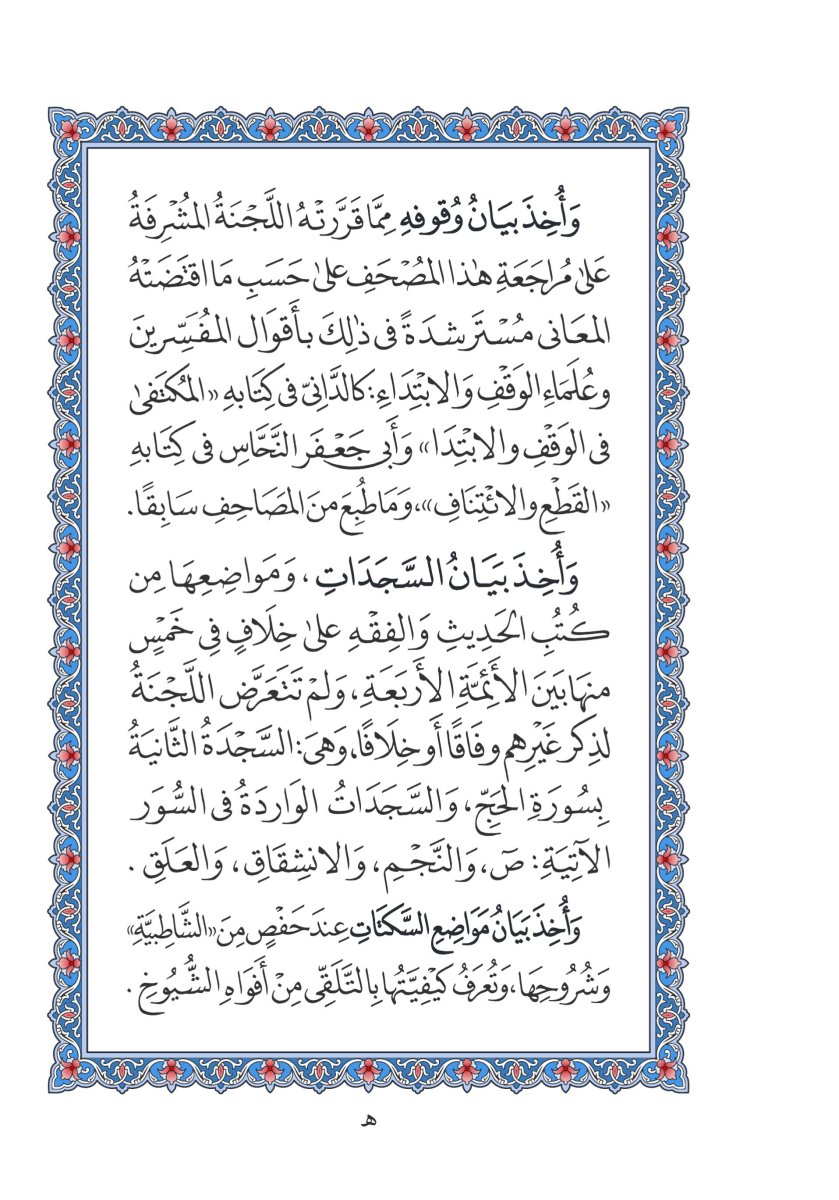 وَأُخِذَ بَيَانُ وُقُوفِهِ مِمَّا قَرَّرَتْهُ اللَّجْنَةُ المُشْرِفَةُ
عَلىٰ مُرَاجَعَةِ هٰذَا المُصْحَفِ عَلىٰ حَسَبِ مَا اقْتَضَتْهُ
المَعَانى مُسْتَرشدَةً فى ذٰلِكَ بأَقوَال المُفَسِّرِينَ
وعُلَمَاءِ الوَقْفِ وَالابْتِدَاءِ: كالدَّانِىّ فى كِتَابهِ «المُكتَفىٰ
فى الوَقْفِ والابْتِدَا» وَأَبى جَعْفَر النَّحَّاسِ فى كِتَابهِ
«القَطْعِ والائْتِنَافِ»، وَمَا طُبِعَ منَ المَصَاحِفِ سَابِقًا.
وَأُخِذَ بَيَانُ السَّجَدَاتِ، وَمَوَاضِعِهَا مِن
كُتُبِ الحَدِيثِ وَالفِقْهِ عَلىٰ خِلَافٍ فِى خَمْسٍ
منهَا بَينَ الأَئِمَّةِ الأَربَعَةِ، وَلَمْ تَتَعَرَّض اللَّجْنَةُ
لذِكر غَيْرِهم وِفَاقًا أَو خِلَافًا، وَهىَ: السَّجْدَةُ الثَّانيَةُ
بِسُورَةِ الحَجِّ، وَالسَّجَدَاتُ الوَاردَةُ فى السُّوَر
الآتِيَةِ: صٓ، وَالنَّجْمِ، وَالانشِقَاقِ، وَالعَلَقِ.
وَأُخِذَ بَيَانُ مَوَاضِعِ السَّكتَاتِ عِندَ حَفْصٍ مِنَ «الشَّاطِبيَّةِ»
وَشُرُوحِهَا، وَتُعرَفُ كَيْفِيَّتُهَا بِالتَّلَقِّى مِنْ أَفوَاهِ الشُّيُوخِ.
ه